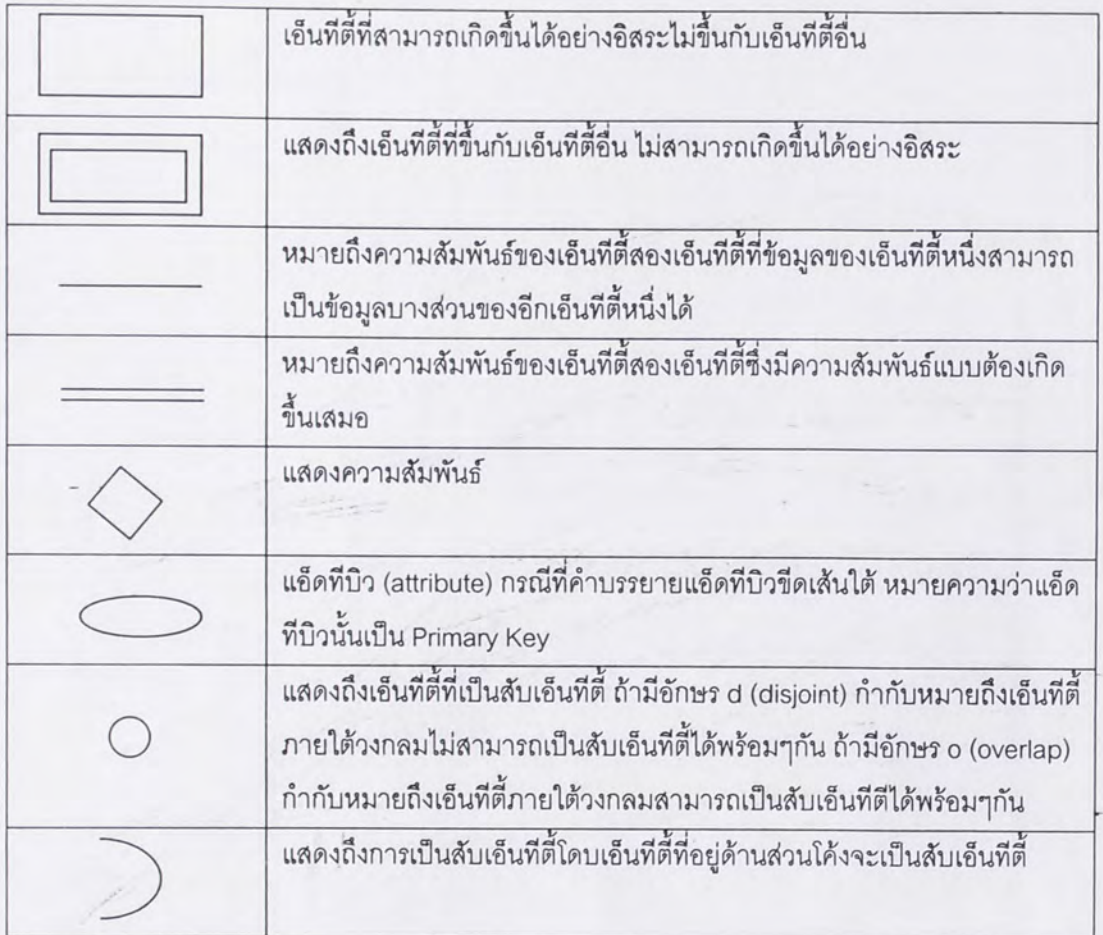 เอ็นทีตี้ที่สามารถเกิดขึ้นได้อย่างอิสระไม่ขึ้นกับเอ็นทีตี้อื่น
แสดงถึงเอ็นทีตี้ที่ขึ้นกับเอ็นทีตี้อื่น ไม่สามารถเกิดขึ้นได้อย่างอิสระ
หมายถึงความสัมพันธ์ของเอ็นทีตี้สองเอ็นทีตี้ที่ข้อมูลของเอ็นทีตี้หนึ่งสามารถ
เป็นข้อมูลบางส่วนของอีกเอ็นทีตี้หนึ่งได้
หมายถึงความสัมพันธ์ของเอ็นทีตี้สองเอ็นทีตี้ซึ่งมีความสัมพันธ์แบบต้องเกิด
ขึ้นเสมอ
แสดงความสัมพันธ์
แอ็ดทีบิว (attribute) กรณีที่คำบรรยายแอ็ดทีบิวขีดเส้นใต้ หมายความว่าแอ็ด
ทีบิวนั้นเป็น Primary Key
แสดงถึงเอ็นทีตี้ที่เป็นสับเอ็นทีตี้ ถ้ามีอักษร d (disjoint) กำกับหมายถึงเอ็นทีตี้
ภายใต้วงกลมไม่สามารถเป็นสับเอ็นทีตี้ได้พร้อมๆกัน ถ้ามีอักษร o (overlap)
กำกับหมายถึงเอ็นทีตี้ภายใต้วงกลมสามารถเป็นสับเอ็นทีตีได้พร้อมๆกัน
แสดงถึงการเป็นสับเอ็นทีตี้โดบเอ็นทีตี้ที่อยู่ด้านส่วนโค้งจะเป็นสับเอ็นทีตี้